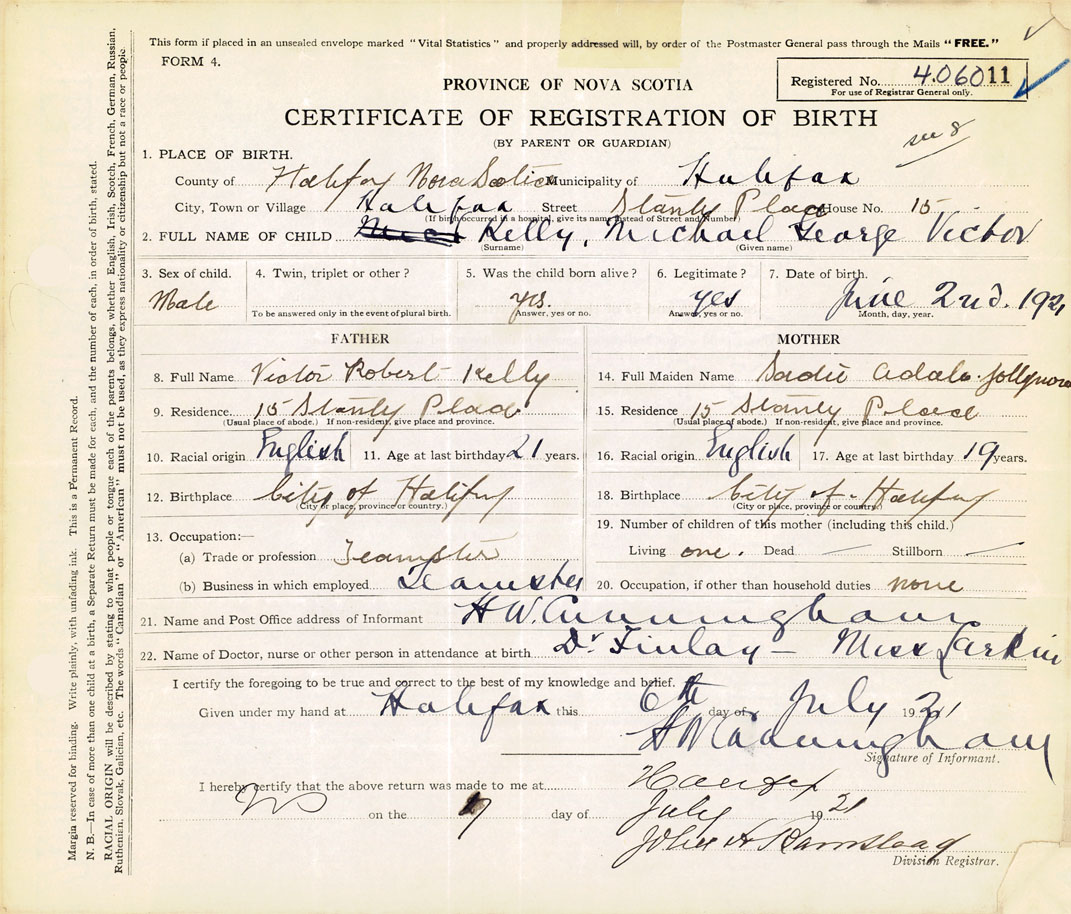 This form if placed in an unsealed envelope marked "Vital Statistics" and properly addressed will, by order of the Postmaster General pass through the Mails "FREE."
FORM 4.
Registered No. 4.06011
For use of Registrar General only.
PROVINCE OF NOVA SCOTIA
CERTIFICATE OF REGISTRATION OF BIRTH
(BY PARENT OR GUARDIAN)
see 8
1. PLACE OF BIRTH.
County of Halifax Nova Scotia Municipality of Halifax
City, Town or Village Halifax Street Stanly Place House No. 15
(If birth occurred in a hospital, give its name instead of Street and Number)
2. FULL NAME OF CHILD Kelly, Michael George Victor
(Surname) (Given name)
3. Sex of child. 4. Twin, triplet or other? 5. Was the child born alive? 6. Legitimate? 7. Date of birth.
Male yes. yes June 2nd. 1921
To be answered only in the event of plural birth. Answer, yes or no. Answer, yes or no. Month, day, year.
FATHER MOTHER
8. Full Name Victor Robert Kelly 14. Full Maiden Name Sadie Adala Jollymore
9. Residence. 15 Stanly Place 15. Residence 15 Stanly Place
(Usual place of abode.) If non-resident, give place and province. (Usual place of abode.) If non-resident, give place and province.
10. Racial origin English 11. Age at last birthday 21 years. 16. Racial origin English 17. Age at last birthday 19 years.
12. Birthplace City of Halifax 18. Birthplace City of Halifax
(City or place, province or country.) (City or place, province or country.)
13. Occupation:— 19. Number of children of this mother (including this child.)
(a) Trade or profession Teamster Living one. Dead — Stillborn —
(b) Business in which employed Teamster 20. Occupation, if other than household duties none
21. Name and Post Office address of Informant H W. Cunningham
22. Name of Doctor, nurse or other person in attendance at birth Dr Finlay — Miss Larkin
I certify the foregoing to be true and correct to the best of my knowledge and belief.
Given under my hand at Halifax this 6th day of July 1921
H W Cunningham
Signature of Informant.
I hereby certify that the above return was made to me at Halifax
on the day of July 1921
John A
Division Registrar.
Margin reserved for binding. Write plainly, with unfading ink. This is a Permanent Record.
N. B.—In case of more than one child at a birth, a Separate Return must be made for each, and the number of each, in order of birth, stated.
RACIAL ORIGIN will be described by stating to what people or tongue each of the parents belongs, whether English, Irish, Scotch, French, German, Russian,
Ruthenian, Slovak, Galician, etc. The words "Canadian" or "American" must not be used, as they express nationality or citizenship but not a race or people.